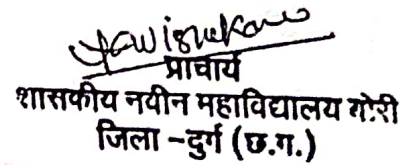 प्राचार्य
शासकीय नवीन महाविद्यालय
जिला - दुर्ग (छ.ग.)